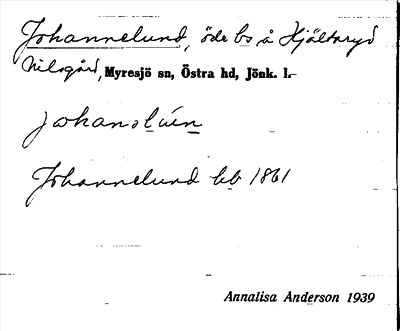 Johannelund, öde bs å Hjältaryd
Nilsgård, Myresjö sn, Östra hd, Jönk. l.
johanslúen
Johannelund kb 1861
Annalisa Anderson 1939